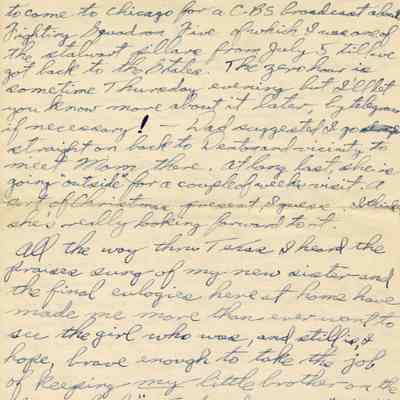 to come to Chicago for a CBS broadcast about
Fighting Squadron Five of which I was one of
the stalwart pillars from July 5 till we
got back to the States. The zero hour is
sometime Thursday evening but I'll let
you know more about it later, by telegram
if necessary! — Dad suggested I go
straight on back to Denver and vicinity to
meet Mom there. At long last, she is
going "outside" for a couple of weeks visit. A
sort of Christmas present, I guess. I think
she's really looking forward to it.
All the way thru Texas I heard the
praises sung of my new sister and
the final eulogies here at home have
made me more than ever want to
see the girl who was, and still is, I
hope, brave enough to take the job
of keeping my little brother on the